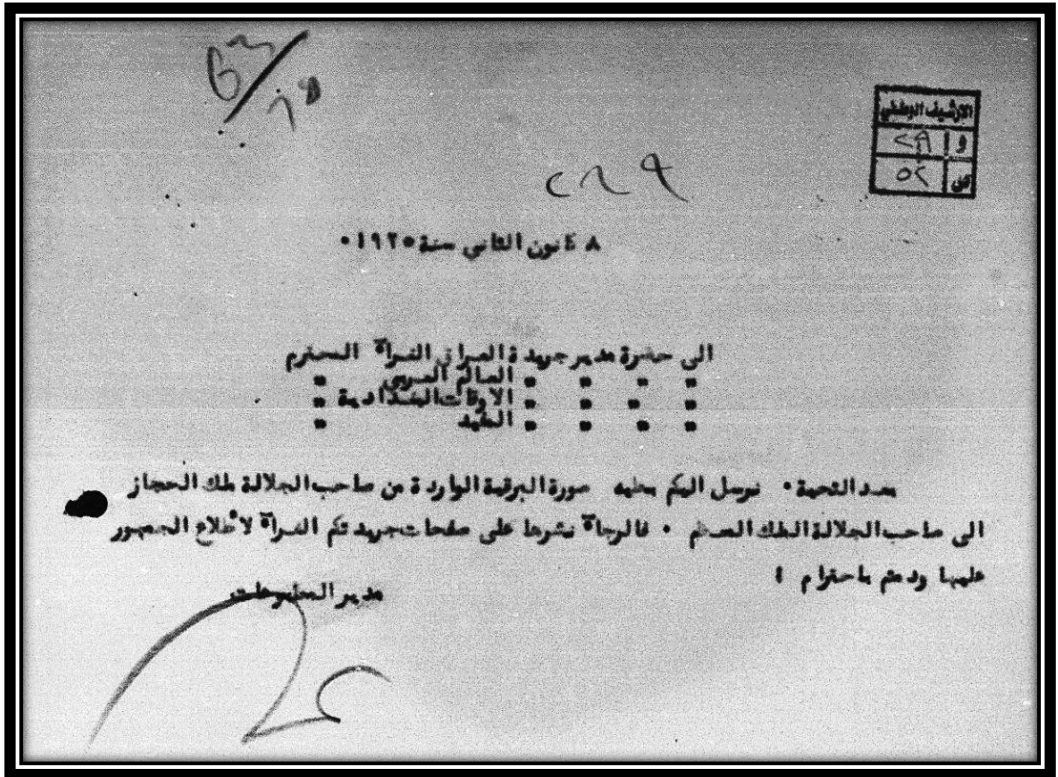 الارشيف الوطني
و ٢٨
ص ٥٢
٢٨٩
٨ كانون الثاني سنة ١٩٢٥٠
الى حضرة مدير جريدة العراق الغراء المحترم
" " " " العالم العربي "
" " " " الاوقات البغدادية "
" " " " المفيد "
بعد التحية ٠ نرسل اليكم بطيه صورة البرقية الواردة من صاحب الجلالة ملك الحجاز
الى صاحب الجلالة الملك المعظم ٠ فالرجاء نشرها على صفحات جريدتكم الغراء لاطلاع الجمهور
عليها ودمتم باحترام ؛
مدير المطبوعات